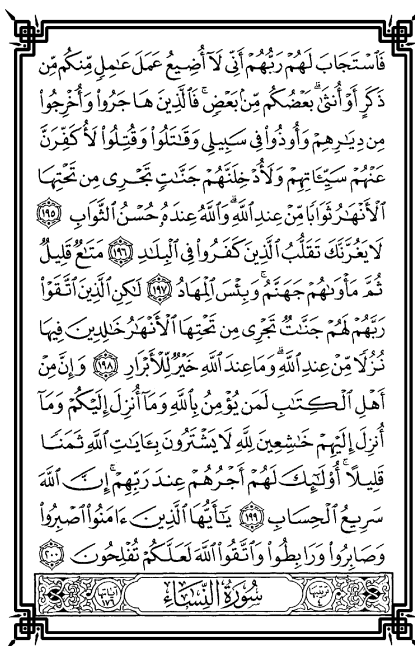 فَٱسْتَجَابَ لَهُمْ رَبُّهُمْ أَنِّي لَآ أُضِيعُ عَمَلَ عَٰمِلٍ مِّنكُم مِّن
ذَكَرٍ أَوْ أُنثَىٰ ۖ بَعْضُكُم مِّنۢ بَعْضٍ ۖ فَٱلَّذِينَ هَاجَرُوا۟ وَأُخْرِجُوا۟
مِن دِيَٰرِهِمْ وَأُوذُوا۟ فِي سَبِيلِي وَقَٰتَلُوا۟ وَقُتِلُوا۟ لَأُكَفِّرَنَّ
عَنْهُمْ سَيِّـَٔاتِهِمْ وَلَأُدْخِلَنَّهُمْ جَنَّٰتٍ تَجْرِي مِن تَحْتِهَا
ٱلْأَنْهَٰرُ ثَوَابًا مِّنْ عِندِ ٱللَّهِ ۗ وَٱللَّهُ عِندَهُۥ حُسْنُ ٱلثَّوَابِ ١٩٥
لَا يَغُرَّنَّكَ تَقَلُّبُ ٱلَّذِينَ كَفَرُوا۟ فِي ٱلْبِلَٰدِ ١٩٦ مَتَٰعٌ قَلِيلٌ
ثُمَّ مَأْوَىٰهُمْ جَهَنَّمُ ۚ وَبِئْسَ ٱلْمِهَادُ ١٩٧ لَٰكِنِ ٱلَّذِينَ ٱتَّقَوْا۟
رَبَّهُمْ لَهُمْ جَنَّٰتٌ تَجْرِي مِن تَحْتِهَا ٱلْأَنْهَٰرُ خَٰلِدِينَ فِيهَا
نُزُلًا مِّنْ عِندِ ٱللَّهِ ۗ وَمَا عِندَ ٱللَّهِ خَيْرٌ لِّلْأَبْرَارِ ١٩٨ وَإِنَّ مِنْ
أَهْلِ ٱلْكِتَٰبِ لَمَن يُؤْمِنُ بِٱللَّهِ وَمَآ أُنزِلَ إِلَيْكُمْ وَمَآ
أُنزِلَ إِلَيْهِمْ خَٰشِعِينَ لِلَّهِ لَا يَشْتَرُونَ بِـَٔايَٰتِ ٱللَّهِ ثَمَنًا
قَلِيلًا ۗ أُو۟لَٰٓئِكَ لَهُمْ أَجْرُهُمْ عِندَ رَبِّهِمْ ۗ إِنَّ ٱللَّهَ
سَرِيعُ ٱلْحِسَابِ ١٩٩ يَٰٓأَيُّهَا ٱلَّذِينَ ءَامَنُوا۟ ٱصْبِرُوا۟
وَصَابِرُوا۟ وَرَابِطُوا۟ وَٱتَّقُوا۟ ٱللَّهَ لَعَلَّكُمْ تُفْلِحُونَ ٢٠٠
ترتيبها ٤ سُورَةُ ٱلنِّسَاءِ آياتها ١٧٦